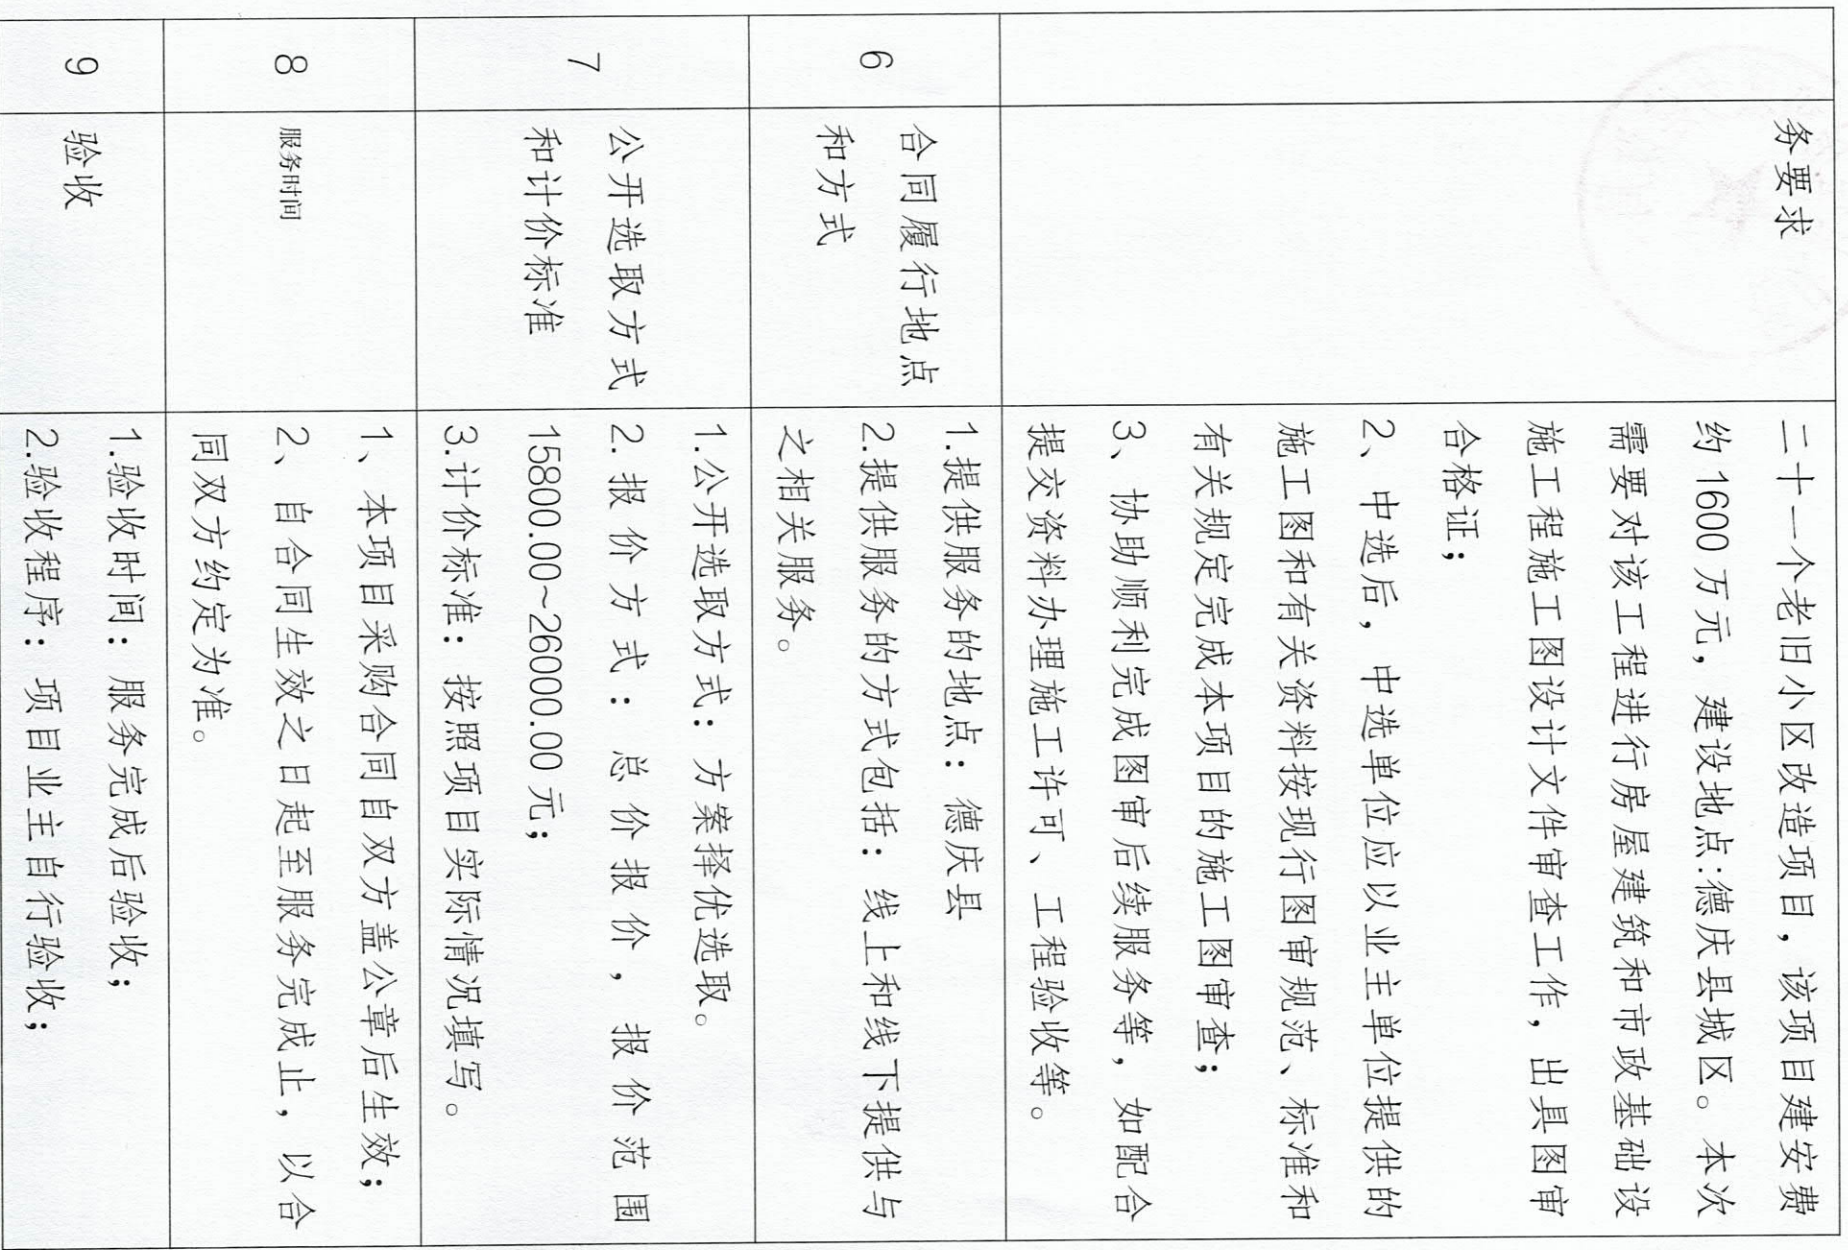 务要求
二十一个老旧小区改造项目，该项目建安费
约 1600 万元，建设地点:德庆县城区。本次
需要对该工程进行房屋建筑和市政基础设
施工程施工图设计文件审查工作，出具图审
合格证；
2、中选后，中选单位应以业主单位提供的
施工图和有关资料按现行图审规范、标准和
有关规定完成本项目的施工图审查；
3、协助顺利完成图审后续服务等，如配合
提交资料办理施工许可、工程验收等。
6
合同履行地点
和方式
1.提供服务的地点：德庆县
2.提供服务的方式包括：线上和线下提供与
之相关服务。
7
公开选取方式
和计价标准
1.公开选取方式：方案择优选取。
2.报价方式：总价报价，报价范围
15800.00~26000.00 元；
3.计价标准：按照项目实际情况填写。
8
服务时间
1、本项目采购合同自双方盖公章后生效；
2、自合同生效之日起至服务完成止，以合
同双方约定为准。
9
验收
1.验收时间：服务完成后验收；
2.验收程序：项目业主自行验收；